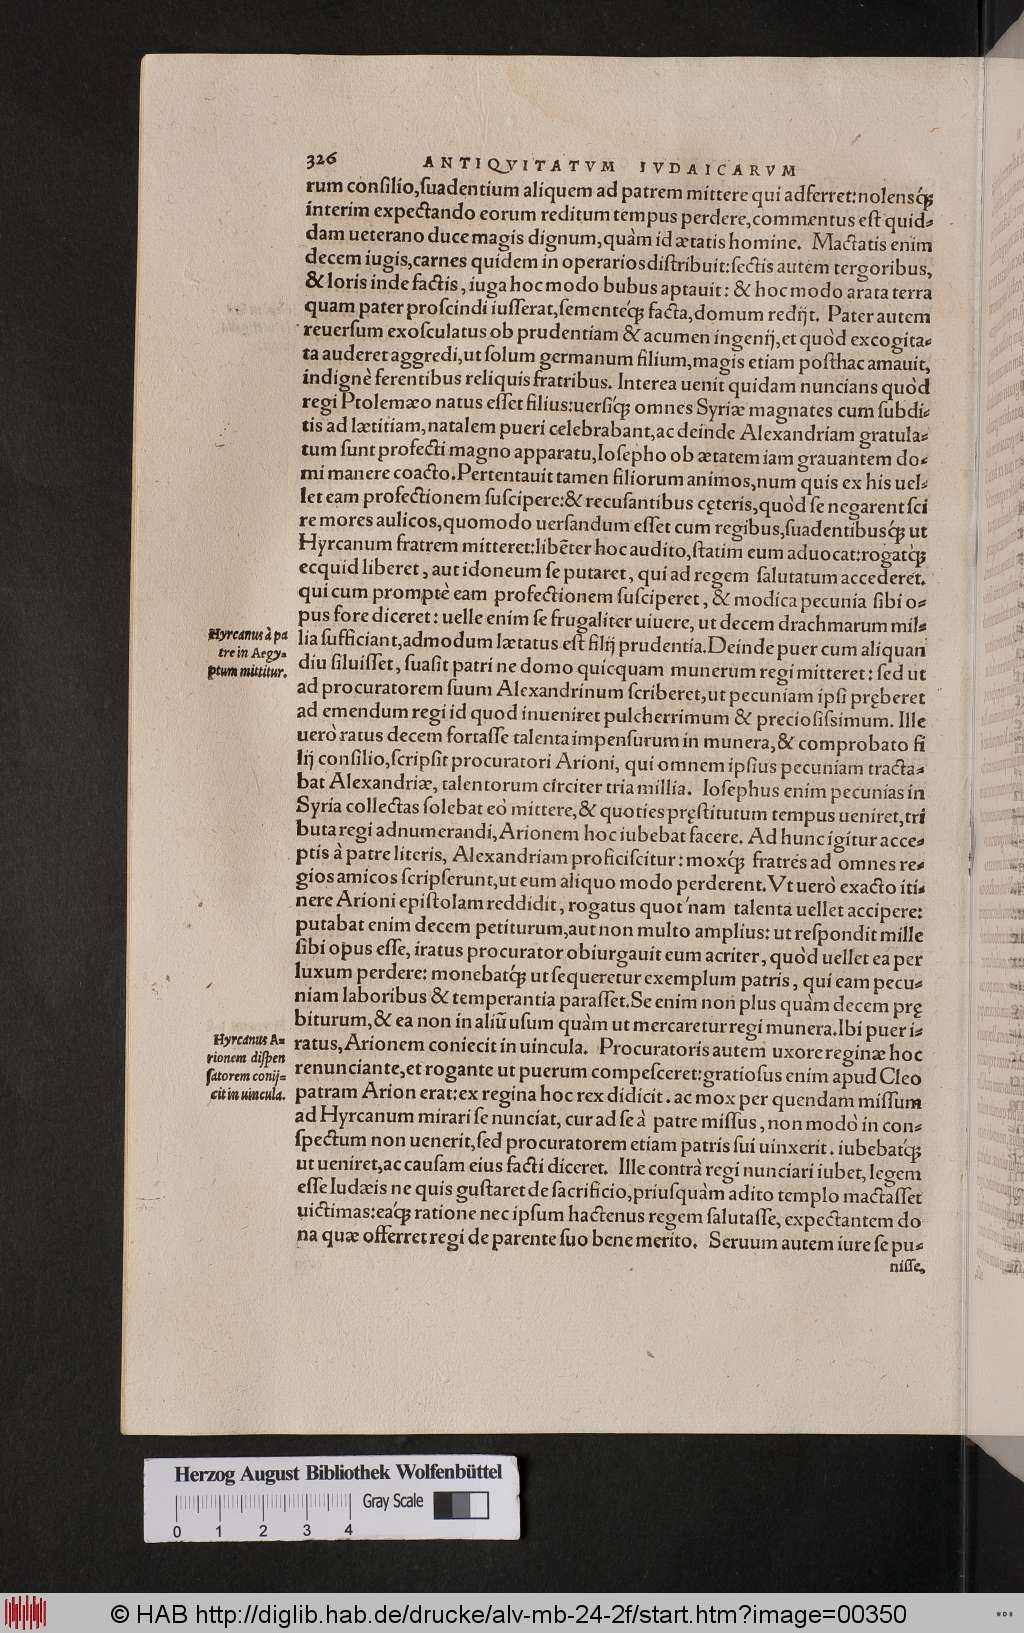 326 ANTIQVITATVM IVDAICARVM
rum conſilio,ſuadentium aliquem ad patrem mittere qui adferret:nolensq́;
interim expectando eorum reditum tempus perdere,commentus eſt quid-
dam ueterano duce magis dignum,quàm id ætatis homine. Mactatis enim
decem iugis,carnes quidem in operarios diſtribuit:ſectis autem tergoribus,
& loris inde factis, iuga hoc modo bubus aptauit: & hoc modo arata terra
quam pater proſcindi iuſſerat,ſementeq́; facta,domum redijt. Pater autem
reuerſum exoſculatus ob prudentiam & acumen ingenij,et quòd excogita-
ta auderet aggredi,ut ſolum germanum filium,magis etiam poſthac amauit,
indignè ferentibus reliquis fratribus. Interea uenit quidam nuncians quòd
regi Ptolemæo natus eſſet filius:uerſiq́; omnes Syriæ magnates cum ſubdi-
tis ad lætitiam,natalem pueri celebrabant,ac deinde Alexandriam gratula-
tum ſunt profecti magno apparatu,Ioſepho ob ætatem iam grauantem do-
mi manere coacto.Pertentauit tamen filiorum animos,num quis ex his uel-
let eam profectionem ſuſcipere:& recuſantibus cęteris,quòd ſe negarent ſci
re mores aulicos,quomodo uerſandum eſſet cum regibus,ſuadentibusq́; ut
Hyrcanum fratrem mitteret:libẽter hoc audito,ſtatim eum aduocat:rogatq́;
ecquid liberet, aut idoneum ſe putaret, qui ad regem ſalutatum accederet.
qui cum promptè eam profectionem ſuſciperet, & modica pecunia ſibi o-
pus fore diceret: uelle enim ſe frugaliter uiuere, ut decem drachmarum mil-
Hyrcanus à pa
tre in Aegy-
ptum mittitur.
lia ſufficiant,admodum lætatus eſt filij prudentia.Deinde puer cum aliquan
diu ſiluiſſet, ſuaſit patri ne domo quicquam munerum regi mitteret: ſed ut
ad procuratorem ſuum Alexandrinum ſcriberet,ut pecuniam ipſi pręberet
ad emendum regi id quod inueniret pulcherrimum & precioſiſsimum. Ille
uerò ratus decem fortaſſe talenta impenſurum in munera,& comprobato fi
lij conſilio,ſcripſit procuratori Arioni, qui omnem ipſius pecuniam tracta-
bat Alexandriæ, talentorum circiter tria millia. Ioſephus enim pecunias in
Syria collectas ſolebat eò mittere,& quoties pręſtitutum tempus ueniret,tri
buta regi adnumerandi,Arionem hoc iubebat facere. Ad hunc igitur acce-
ptis à patre literis, Alexandriam proficiſcitur: moxq́; fratres ad omnes re-
gios amicos ſcripſerunt,ut eum aliquo modo perderent.Vt uerò exacto iti-
nere Arioni epiſtolam reddidit, rogatus quot nam talenta uellet accipere:
putabat enim decem petiturum,aut non multo amplius: ut reſpondit mille
ſibi opus eſſe, iratus procurator obiurgauit eum acriter, quòd uellet ea per
luxum perdere: monebatq́; ut ſequeretur exemplum patris, qui eam pecu-
niam laboribus & temperantia paraſſet.Se enim non plus quàm decem prę
biturum,& ea non in aliũ uſum quàm ut mercaretur regi munera.Ibi puer i-
Hyrcanus A-
rionem diſpen
ſatorem conij-
cit in uincula.
ratus,Arionem coniecit in uincula. Procuratoris autem uxore reginæ hoc
renunciante,et rogante ut puerum compeſceret:gratioſus enim apud Cleo
patram Arion erat:ex regina hoc rex didicit. ac mox per quendam miſſum
ad Hyrcanum mirari ſe nunciat, cur ad ſe à patre miſſus, non modò in con-
ſpectum non uenerit,ſed procuratorem etiam patris ſui uinxerit. iubebatq́;
ut ueniret,ac cauſam eius facti diceret. Ille contrà regi nunciari iubet, legem
eſſe Iudæis ne quis guſtaret de ſacrificio,priuſquàm adito templo mactaſſet
uictimas:eaq́; ratione nec ipſum hactenus regem ſalutaſſe, expectantem do
na quæ offerret regi de parente ſuo bene merito. Seruum autem iure ſe pu-
niſſe,
Herzog August Bibliothek Wolfenbüttel
Gray Scale
0 1 2 3 4
© HAB http://diglib.hab.de/drucke/alv-mb-24-2f/start.htm?image=00350